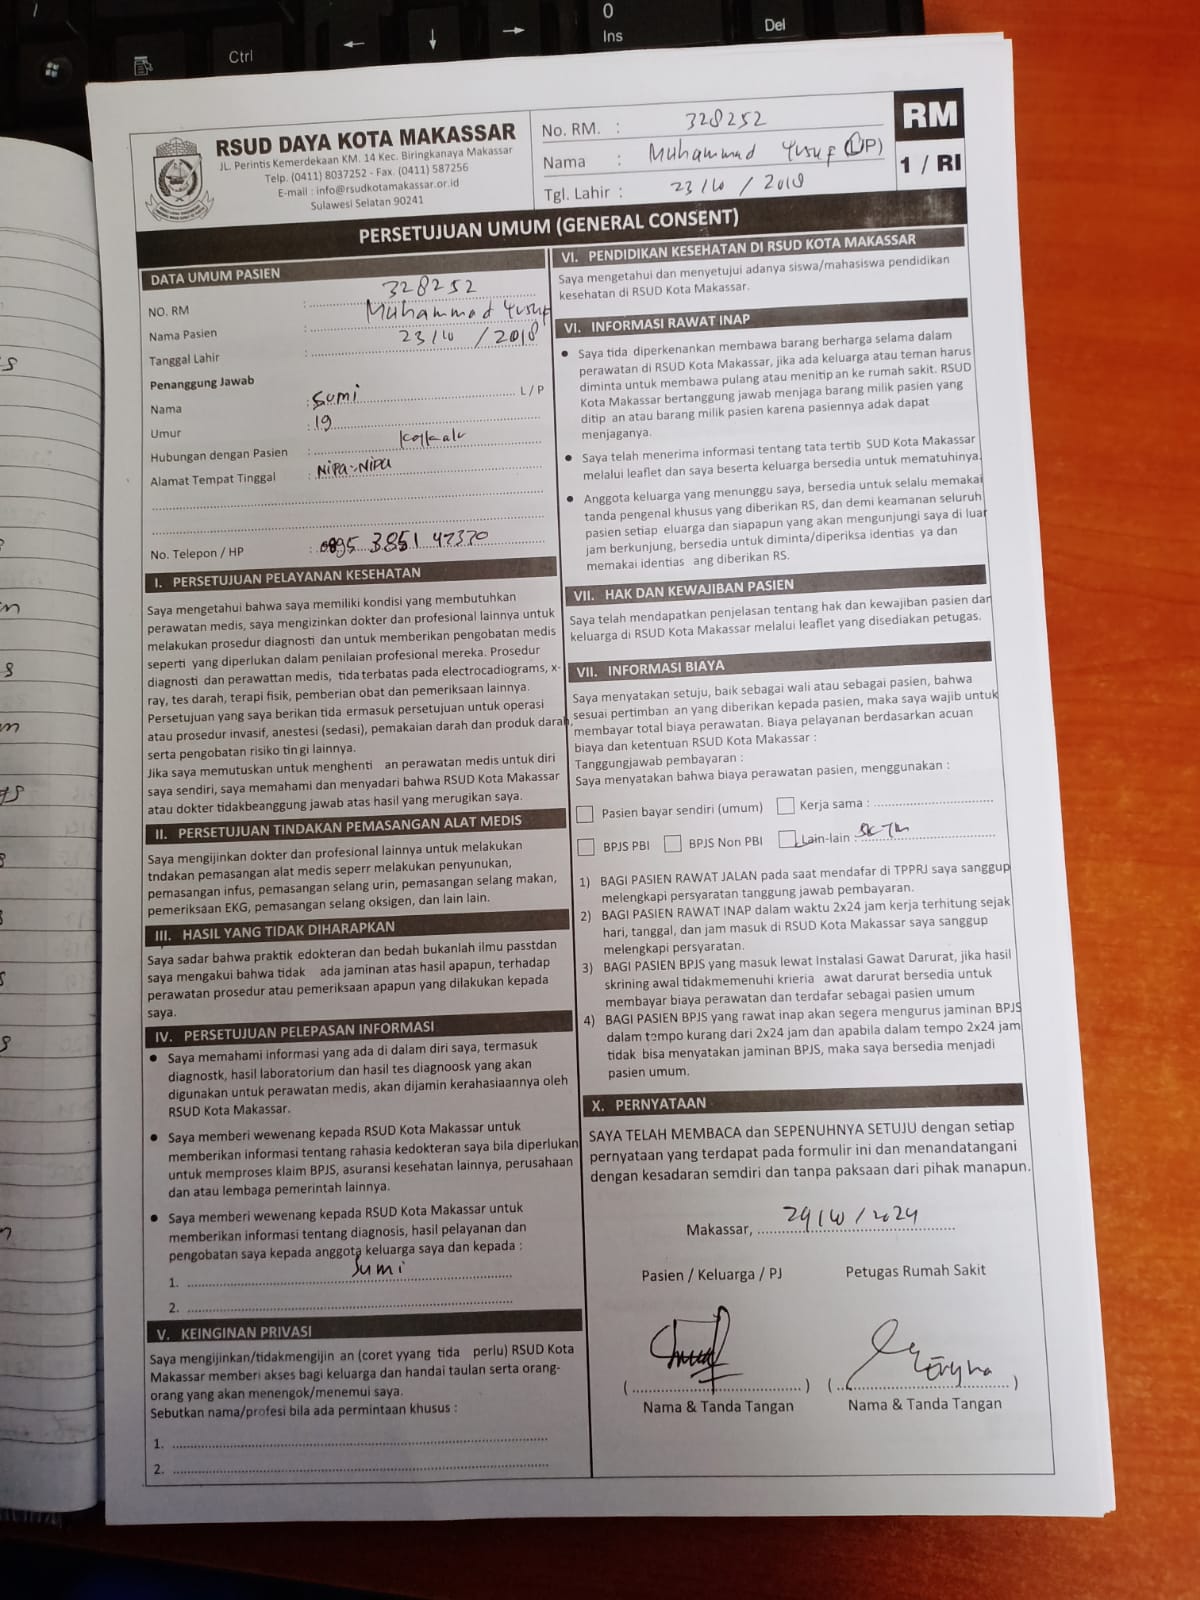 Ctrl
0
Ins
Del
RSUD DAYA KOTA MAKASSAR
JL. Perintis Kemerdekaan KM. 14 Kec. Biringkanaya Makassar
Telp. (0411) 8037252 - Fax. (0411) 587256
E-mail : info@rsudkotamakassar.or.id
Sulawesi Selatan 90241
No. RM. : 328252
Nama : Muhammad Yusuf (L/P)
Tgl. Lahir : 23/10/2018
RM
1 / RI
PERSETUJUAN UMUM (GENERAL CONSENT)
DATA UMUM PASIEN
NO. RM : 328252
Nama Pasien : Muhammad Yusuf
Tanggal Lahir : 23/10/2018
Penanggung Jawab
Nama : Sumi L / P
Umur : 19
Hubungan dengan Pasien :
Alamat Tempat Tinggal : Nipa-Nipa
No. Telepon / HP : 0895 3851 47370
I. PERSETUJUAN PELAYANAN KESEHATAN
Saya mengetahui bahwa saya memiliki kondisi yang membutuhkan
perawatan medis, saya mengizinkan dokter dan profesional lainnya untuk
melakukan prosedur diagnosti dan untuk memberikan pengobatan medis
seperti yang diperlukan dalam penilaian profesional mereka. Prosedur
diagnosti dan perawattan medis, tida terbatas pada electrocadiograms, x-
ray, tes darah, terapi fisik, pemberian obat dan pemeriksaan lainnya.
Persetujuan yang saya berikan tida ermasuk persetujuan untuk operasi
atau prosedur invasif, anestesi (sedasi), pemakaian darah dan produk darah,
serta pengobatan risiko tin gi lainnya.
Jika saya memutuskan untuk menghenti an perawatan medis untuk diri
saya sendiri, saya memahami dan menyadari bahwa RSUD Kota Makassar
atau dokter tidakbeanggung jawab atas hasil yang merugikan saya.
II. PERSETUJUAN TINDAKAN PEMASANGAN ALAT MEDIS
Saya mengijinkan dokter dan profesional lainnya untuk melakukan
tndakan pemasangan alat medis seperr melakukan penyunukan,
pemasangan infus, pemasangan selang urin, pemasangan selang makan,
pemeriksaan EKG, pemasangan selang oksigen, dan lain lain.
III. HASIL YANG TIDAK DIHARAPKAN
Saya sadar bahwa praktik edokteran dan bedah bukanlah ilmu passtdan
saya mengakui bahwa tidak ada jaminan atas hasil apapun, terhadap
perawatan prosedur atau pemeriksaan apapun yang dilakukan kepada
saya.
IV. PERSETUJUAN PELEPASAN INFORMASI
• Saya memahami informasi yang ada di dalam diri saya, termasuk
diagnostk, hasil laboratorium dan hasil tes diagnoosk yang akan
digunakan untuk perawatan medis, akan dijamin kerahasiaannya oleh
RSUD Kota Makassar.
• Saya memberi wewenang kepada RSUD Kota Makassar untuk
memberikan informasi tentang rahasia kedokteran saya bila diperlukan
untuk memproses klaim BPJS, asuransi kesehatan lainnya, perusahaan
dan atau lembaga pemerintah lainnya.
• Saya memberi wewenang kepada RSUD Kota Makassar untuk
memberikan informasi tentang diagnosis, hasil pelayanan dan
pengobatan saya kepada anggota keluarga saya dan kepada :
1. Sumi
2.
V. KEINGINAN PRIVASI
Saya mengijinkan/tidakmengijin an (coret yyang tida perlu) RSUD Kota
Makassar memberi akses bagi keluarga dan handai taulan serta orang-
orang yang akan menengok/menemui saya.
Sebutkan nama/profesi bila ada permintaan khusus :
1.
2.
VI. PENDIDIKAN KESEHATAN DI RSUD KOTA MAKASSAR
Saya mengetahui dan menyetujui adanya siswa/mahasiswa pendidikan
kesehatan di RSUD Kota Makassar.
VI. INFORMASI RAWAT INAP
• Saya tida diperkenankan membawa barang berharga selama dalam
perawatan di RSUD Kota Makassar, jika ada keluarga atau teman harus
diminta untuk membawa pulang atau menitip an ke rumah sakit. RSUD
Kota Makassar bertanggung jawab menjaga barang milik pasien yang
ditip an atau barang milik pasien karena pasiennya adak dapat
menjaganya.
• Saya telah menerima informasi tentang tata tertib SUD Kota Makassar
melalui leaflet dan saya beserta keluarga bersedia untuk mematuhinya.
• Anggota keluarga yang menunggu saya, bersedia untuk selalu memakai
tanda pengenal khusus yang diberikan RS, dan demi keamanan seluruh
pasien setiap eluarga dan siapapun yang akan mengunjungi saya di luar
jam berkunjung, bersedia untuk diminta/diperiksa identias ya dan
memakai identias ang diberikan RS.
VII. HAK DAN KEWAJIBAN PASIEN
Saya telah mendapatkan penjelasan tentang hak dan kewajiban pasien dan
keluarga di RSUD Kota Makassar melalui leaflet yang disediakan petugas.
VII. INFORMASI BIAYA
Saya menyatakan setuju, baik sebagai wali atau sebagai pasien, bahwa
sesuai pertimban an yang diberikan kepada pasien, maka saya wajib untuk
membayar total biaya perawatan. Biaya pelayanan berdasarkan acuan
biaya dan ketentuan RSUD Kota Makassar :
Tanggungjawab pembayaran :
Saya menyatakan bahwa biaya perawatan pasien, menggunakan :
Pasien bayar sendiri (umum) Kerja sama :
BPJS PBI BPJS Non PBI Lain-lain : SKTM
1) BAGI PASIEN RAWAT JALAN pada saat mendafar di TPPRJ saya sanggup
melengkapi persyaratan tanggung jawab pembayaran.
2) BAGI PASIEN RAWAT INAP dalam waktu 2x24 jam kerja terhitung sejak
hari, tanggal, dan jam masuk di RSUD Kota Makassar saya sanggup
melengkapi persyaratan.
3) BAGI PASIEN BPJS yang masuk lewat Instalasi Gawat Darurat, jika hasil
skrining awal tidakmemenuhi krieria awat darurat bersedia untuk
membayar biaya perawatan dan terdafar sebagai pasien umum
4) BAGI PASIEN BPJS yang rawat inap akan segera mengurus jaminan BPJS
dalam tempo kurang dari 2x24 jam dan apabila dalam tempo 2x24 jam
tidak bisa menyatakan jaminan BPJS, maka saya bersedia menjadi
pasien umum.
X. PERNYATAAN
SAYA TELAH MEMBACA dan SEPENUHNYA SETUJU dengan setiap
pernyataan yang terdapat pada formulir ini dan menandatangani
dengan kesadaran semdiri dan tanpa paksaan dari pihak manapun.
Makassar, 29/10/2024
Pasien / Keluarga / PJ Petugas Rumah Sakit
( ) ( )
Nama & Tanda Tangan Nama & Tanda Tangan